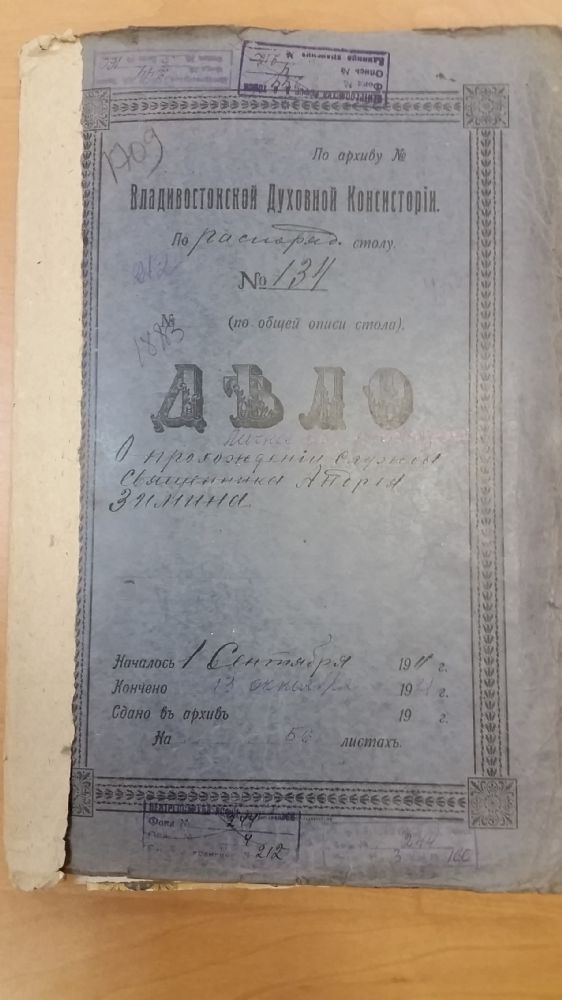 1709
По архиву №
Владивостокской Духовной Консисторіи.
По распоряд. столу.
212
№ 134
№ (по общей описи стола).
1883
ДѢЛО
О прохожденіи службы
священника
Зимина.
Началось 1 Сентября 1911 г.
Кончено 13 октября 1921 г.
Сдано въ архивъ 19 г.
На листахъ.
Фонд № 244
4
212
244
3 166